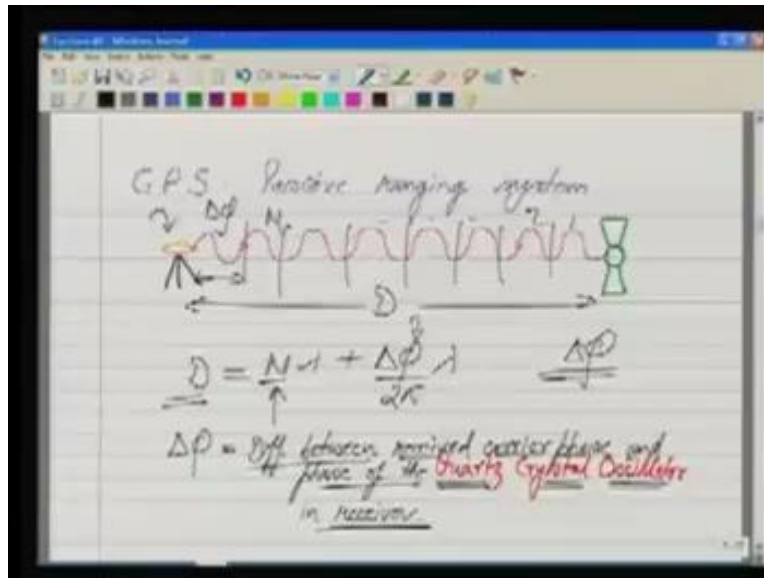 GPS Passive ranging system
Δφ N λ
D
D = Nλ + Δφ/2π λ Δφ
Δφ = Diff between received carrier phase and
phase of the Quartz Crystal Oscillator
in receiver